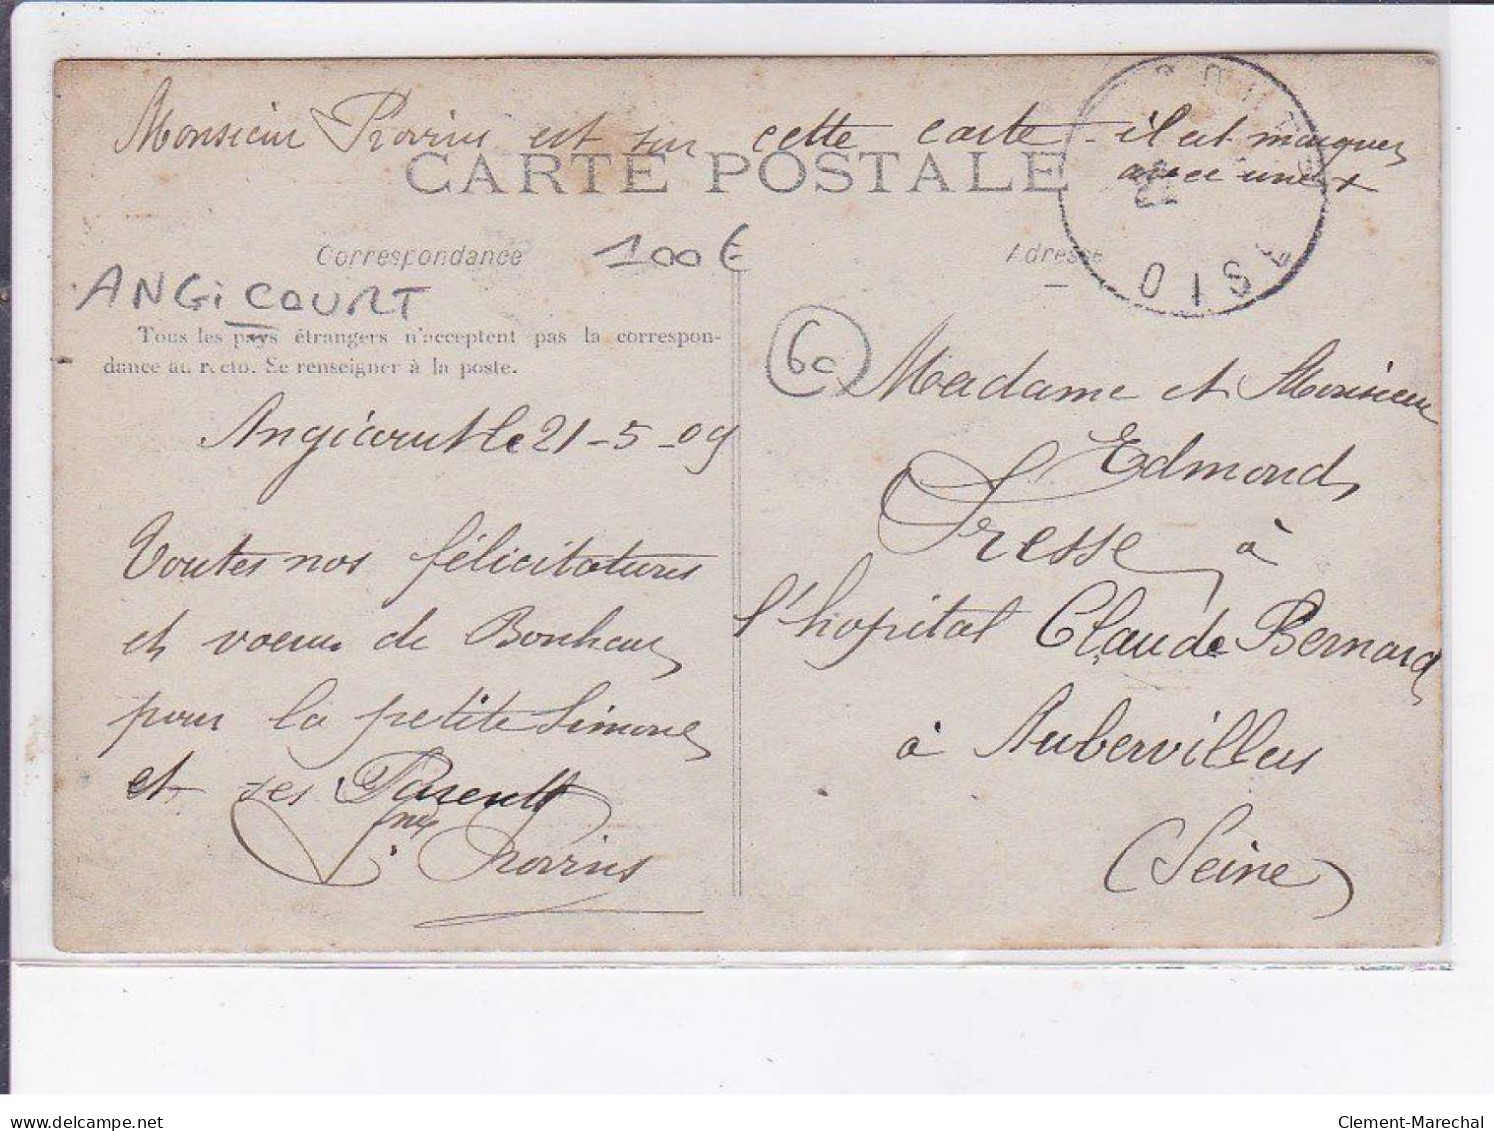 Monsieur Provins est sur cette carte - il est marquer
avec une +
CARTE POSTALE
Correspondance
100€
Adresse
OISE
ANGiCOURT
Tous les pays étrangers n'acceptent pas la correspon-
dance au recto. Se renseigner à la poste.
60
Angicourt le 21-5-09
Toutes nos félicitations
et voeux de Bonheur
pour la petite Simone
et ses Parents
Provins
Madame et Monsieur
Edmond
Fresse à
l'hopital Claude Bernard
à Aubervilliers
(Seine)
delcampe.net
Clement-Marechal